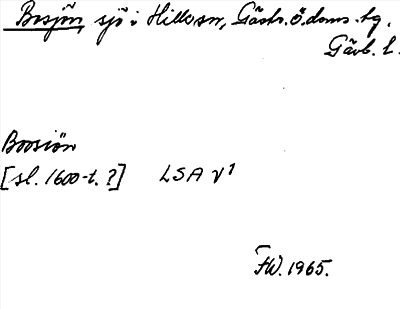 Bosjön, sjö i Hille sn, Gästr. ö. doms. tg.
Gävl. l.
Boosiön
[sl. 1600-t. ?] LSA V1
FW. 1965.